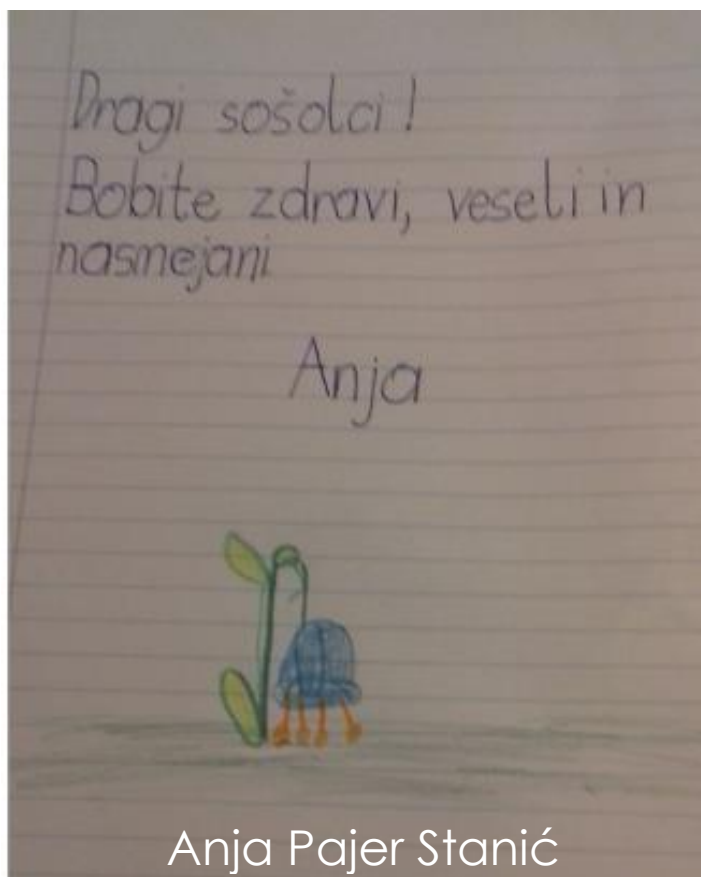 Dragi sošolci!
Bobite zdravi, veseli in
nasmejani
Anja
Anja Pajer Stanić